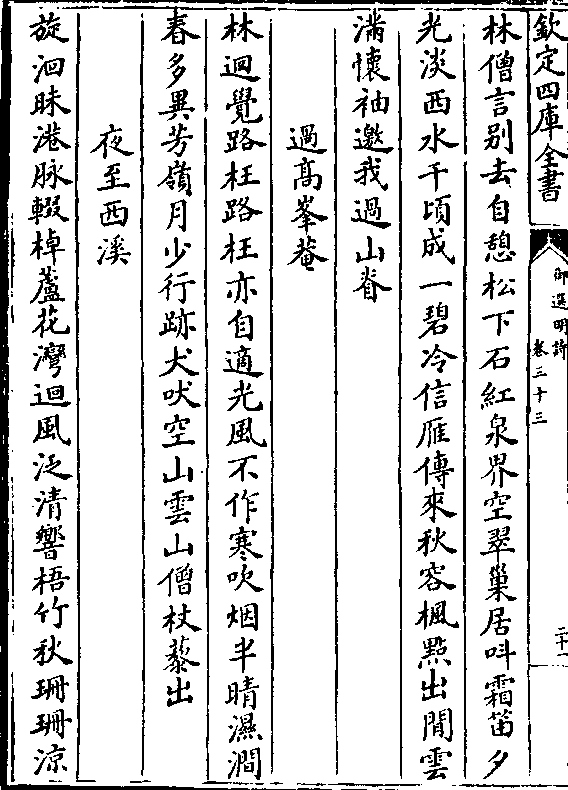 欽定四庫全書
御選明詩
卷三十三
二十一
林僧言别去自憩松下石紅泉界空翠巢居呌霜笛夕
光淡西水千頃成一碧冷信雁傳來秋容楓點出閒雲
滿懷袖邀我過山脊
過髙峯菴
林迴覺路枉路枉亦自適光風不作寒吹烟半晴濕澗
春多異芳嶺月少行跡犬吠空山雲山僧杖藜出
夜至西溪
旋洄昧港脉輟棹蘆花灣迴風泛清響梧竹秋珊珊涼